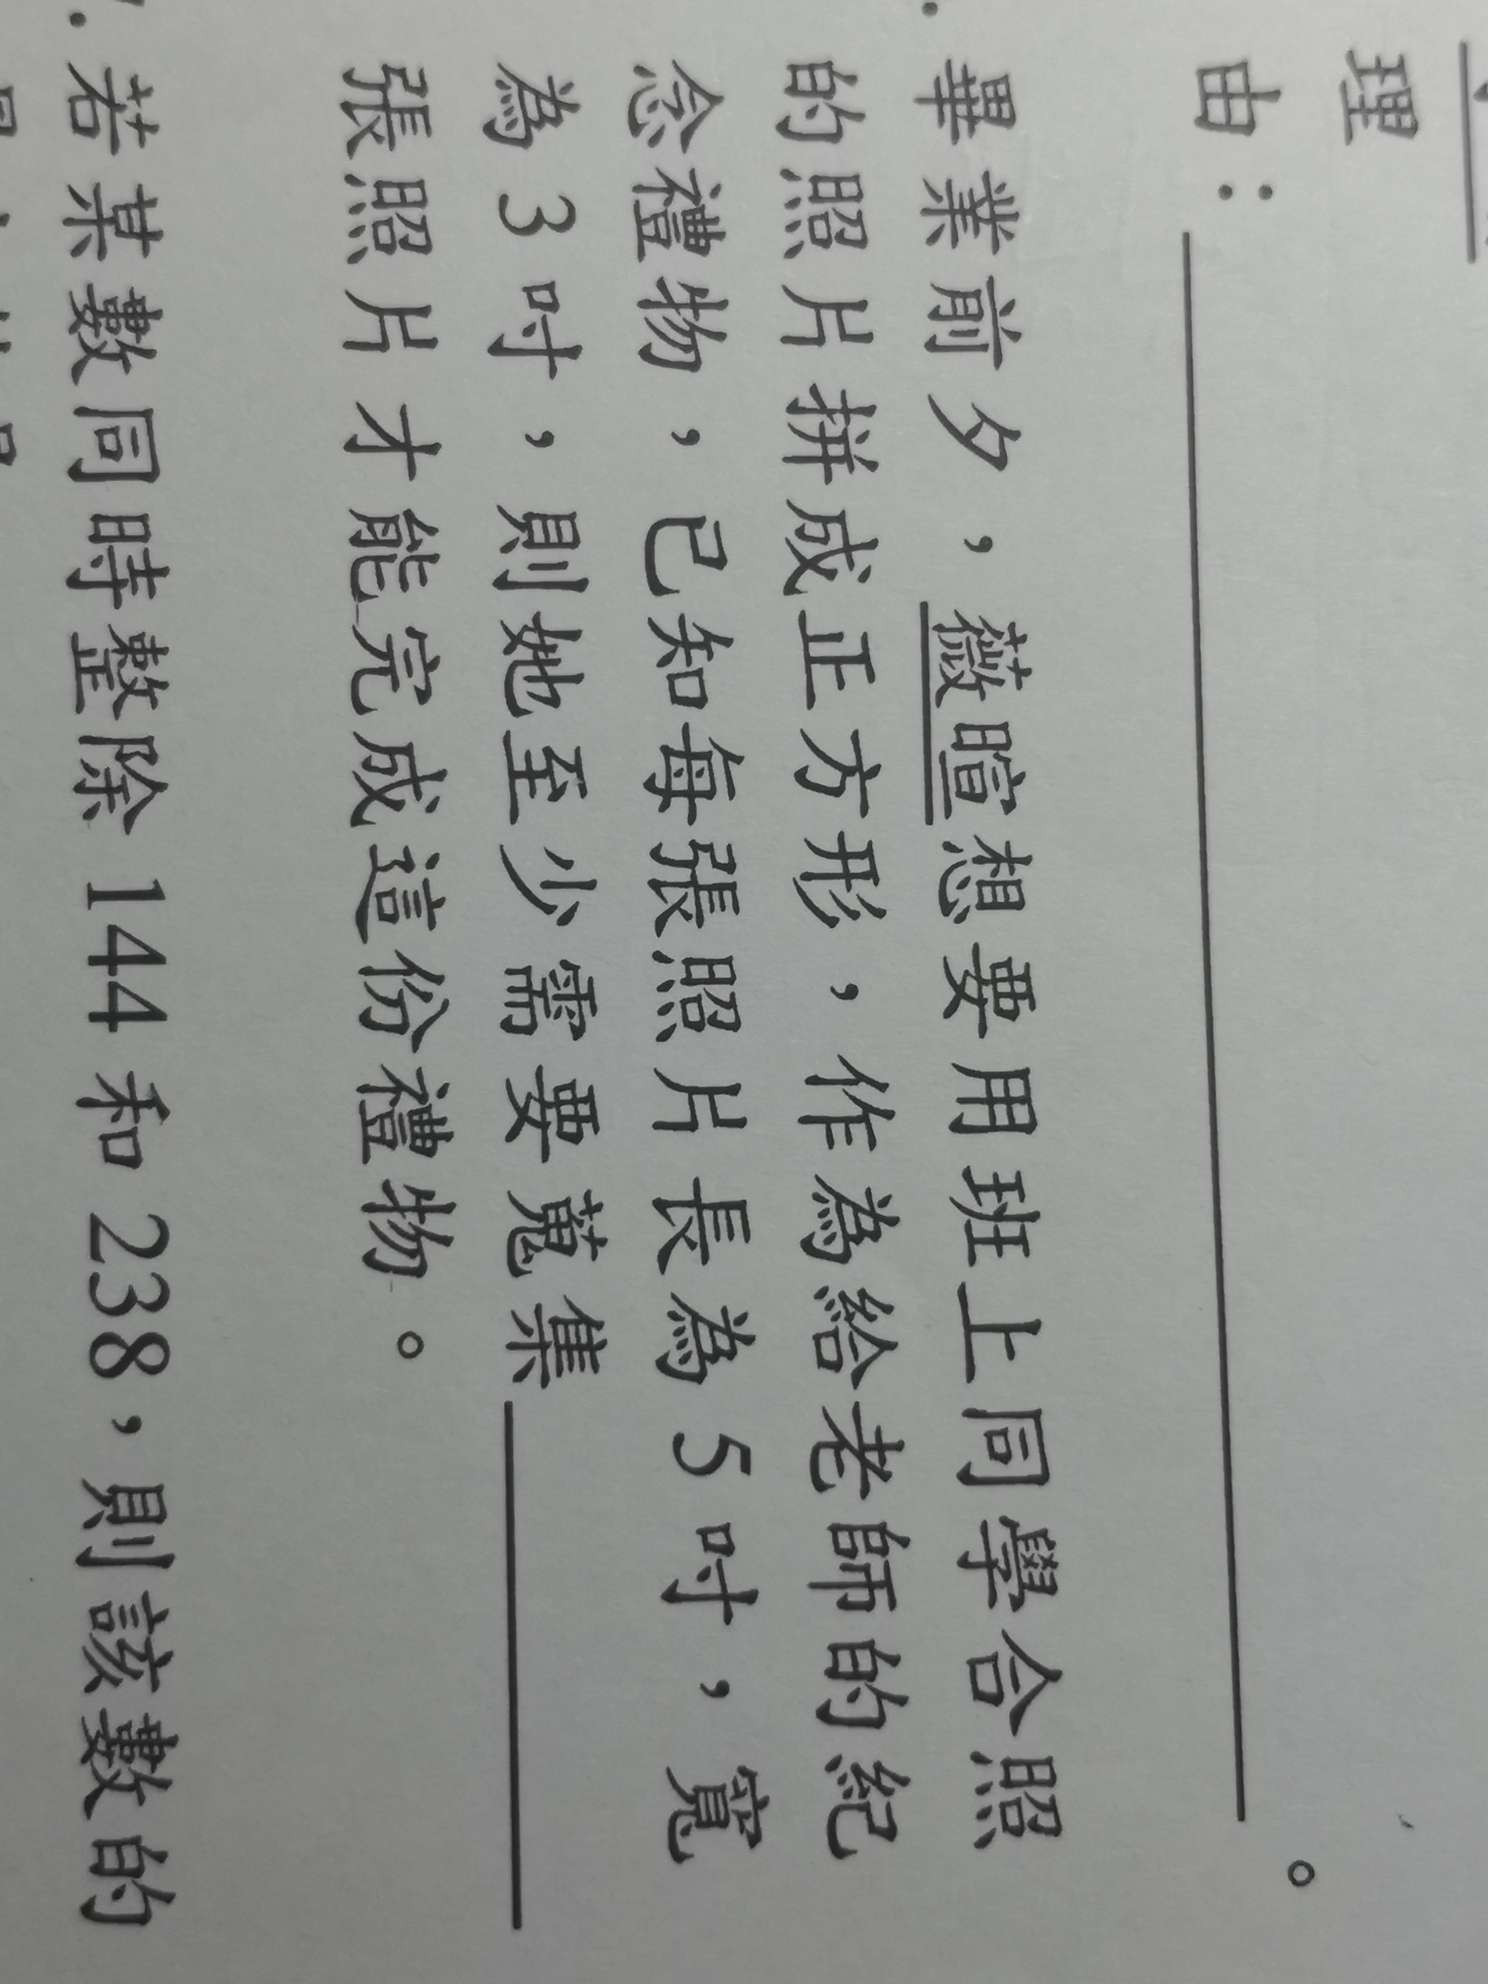 理
由：
。
畢業前夕，薇暄想要用班上同學合照
的照片拼成正方形，作為給老師的紀
念禮物，已知每張照片長為5吋，寬
為3吋，則她至少需要蒐集
張照片才能完成這份禮物。
若某數同時整除144和238，則該數的